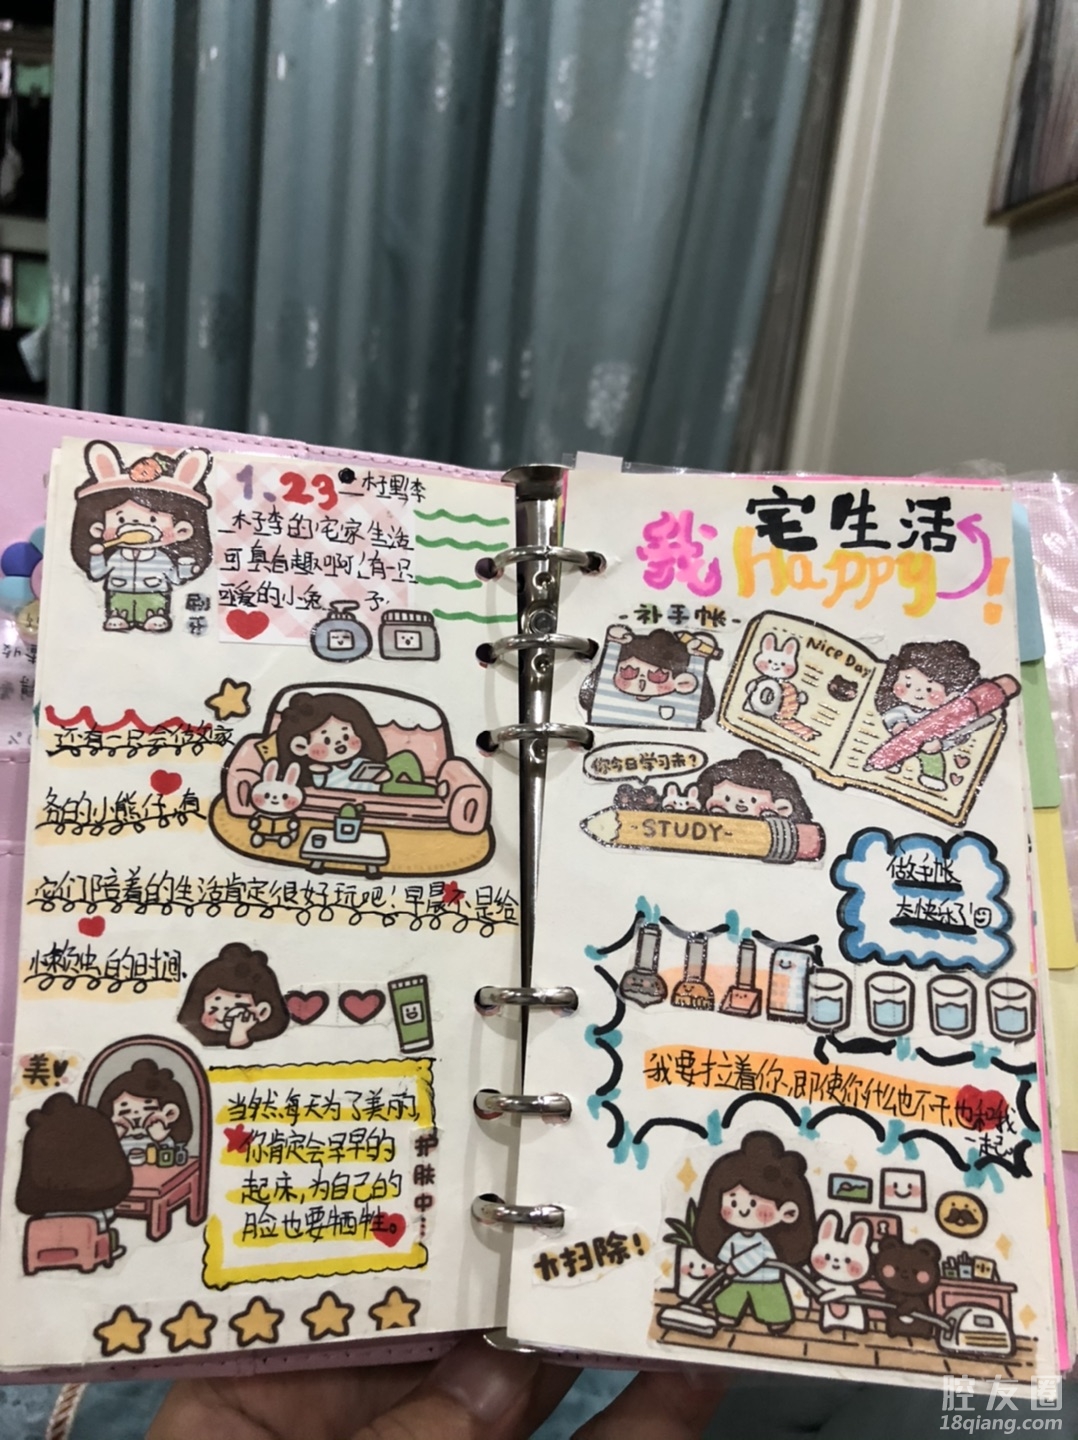 1.23
木子李的宅家生活
可真自趣啊！有一只
可爱的小兔子.
刷牙
还有一只会做家
务的小熊仔,有
它们陪着的生活肯定很好玩吧！早晨不是给
懒虫的时间.
美!
当然,每天为了美丽,
你肯定会早早的
起床,为自己的
脸也要牺牲。
护肤中...
宅生活
我Happy!
-补手帐-
Nice Day
你今日学习未?
-STUDY-
做手帐
太快乐了!
我要拉着你、即使你什么也不干,也和我
一起。
大扫除!
腔友圈
18qiang.com